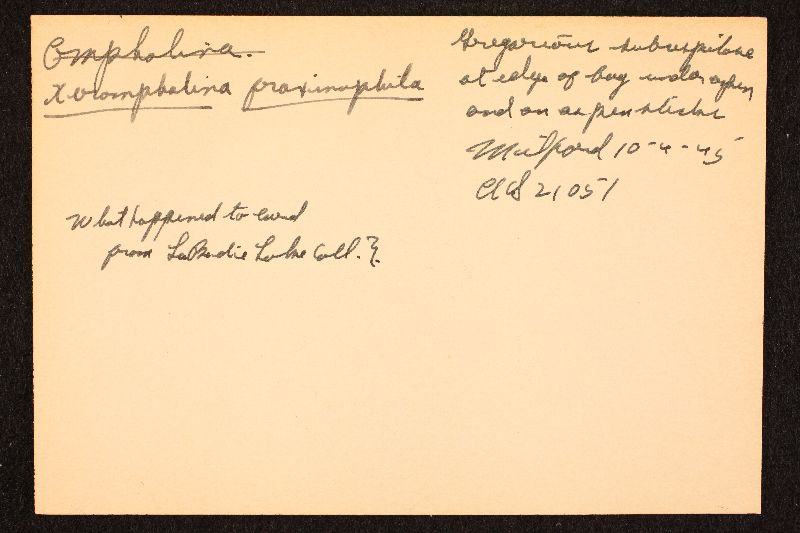 Omphalina
Xeromphalina fraxinophila
Gregarious subcespitose
at edge of bog under aspen
and on aspen sticks
Milford 10-4-45
AHS 21051
What happened to card
from LaBadie Lake Coll.?